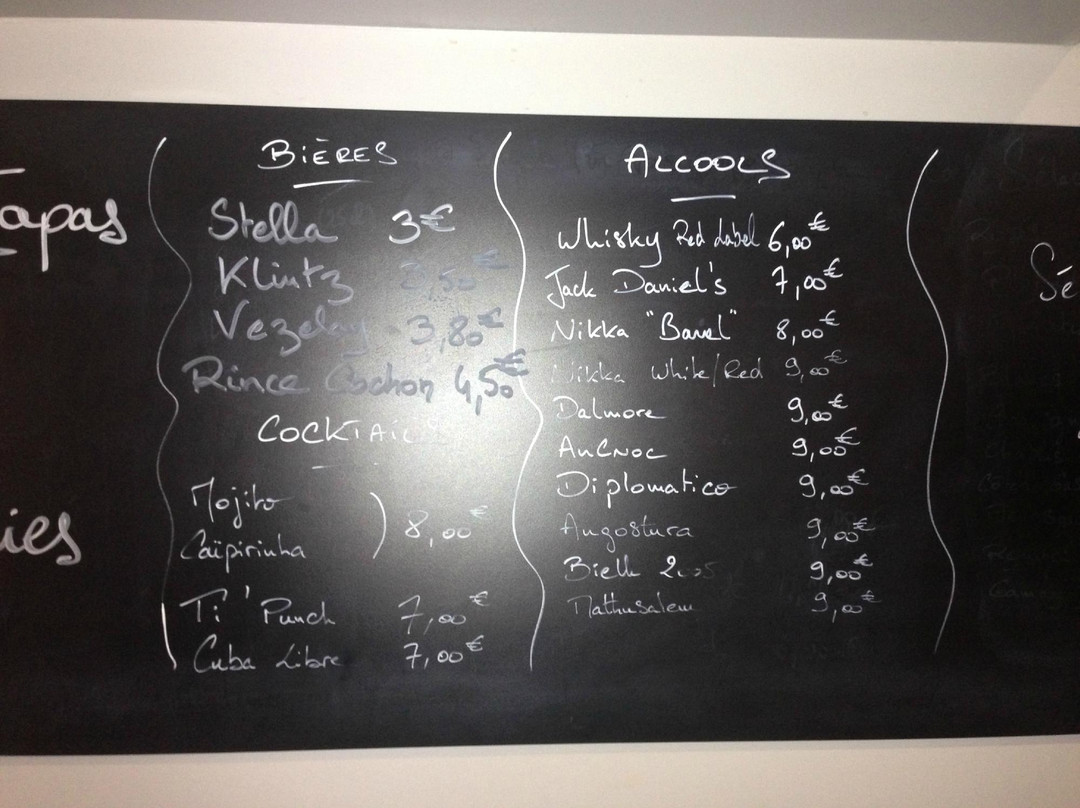 apas
ies
BIÈRES
Stella 3€
Klintz 3,50€
Vezelay 3,80€
Rince Cochon 4,50€
COCKTAILS
Mojito
Caïpirinha
8,00€
Ti' Punch 7,00€
Cuba Libre 7,00€
ALCOOLS
Whisky Red Label 6,00€
Jack Daniel's 7,00€
Nikka "Barrel" 8,00€
Nikka White/Red 9,00€
Dalmore 9,00€
AnCnoc 9,00€
Diplomatico 9,00€
Angostura 9,00€
Bielle 2005 9,00€
Mathusalem 9,00€
Sé